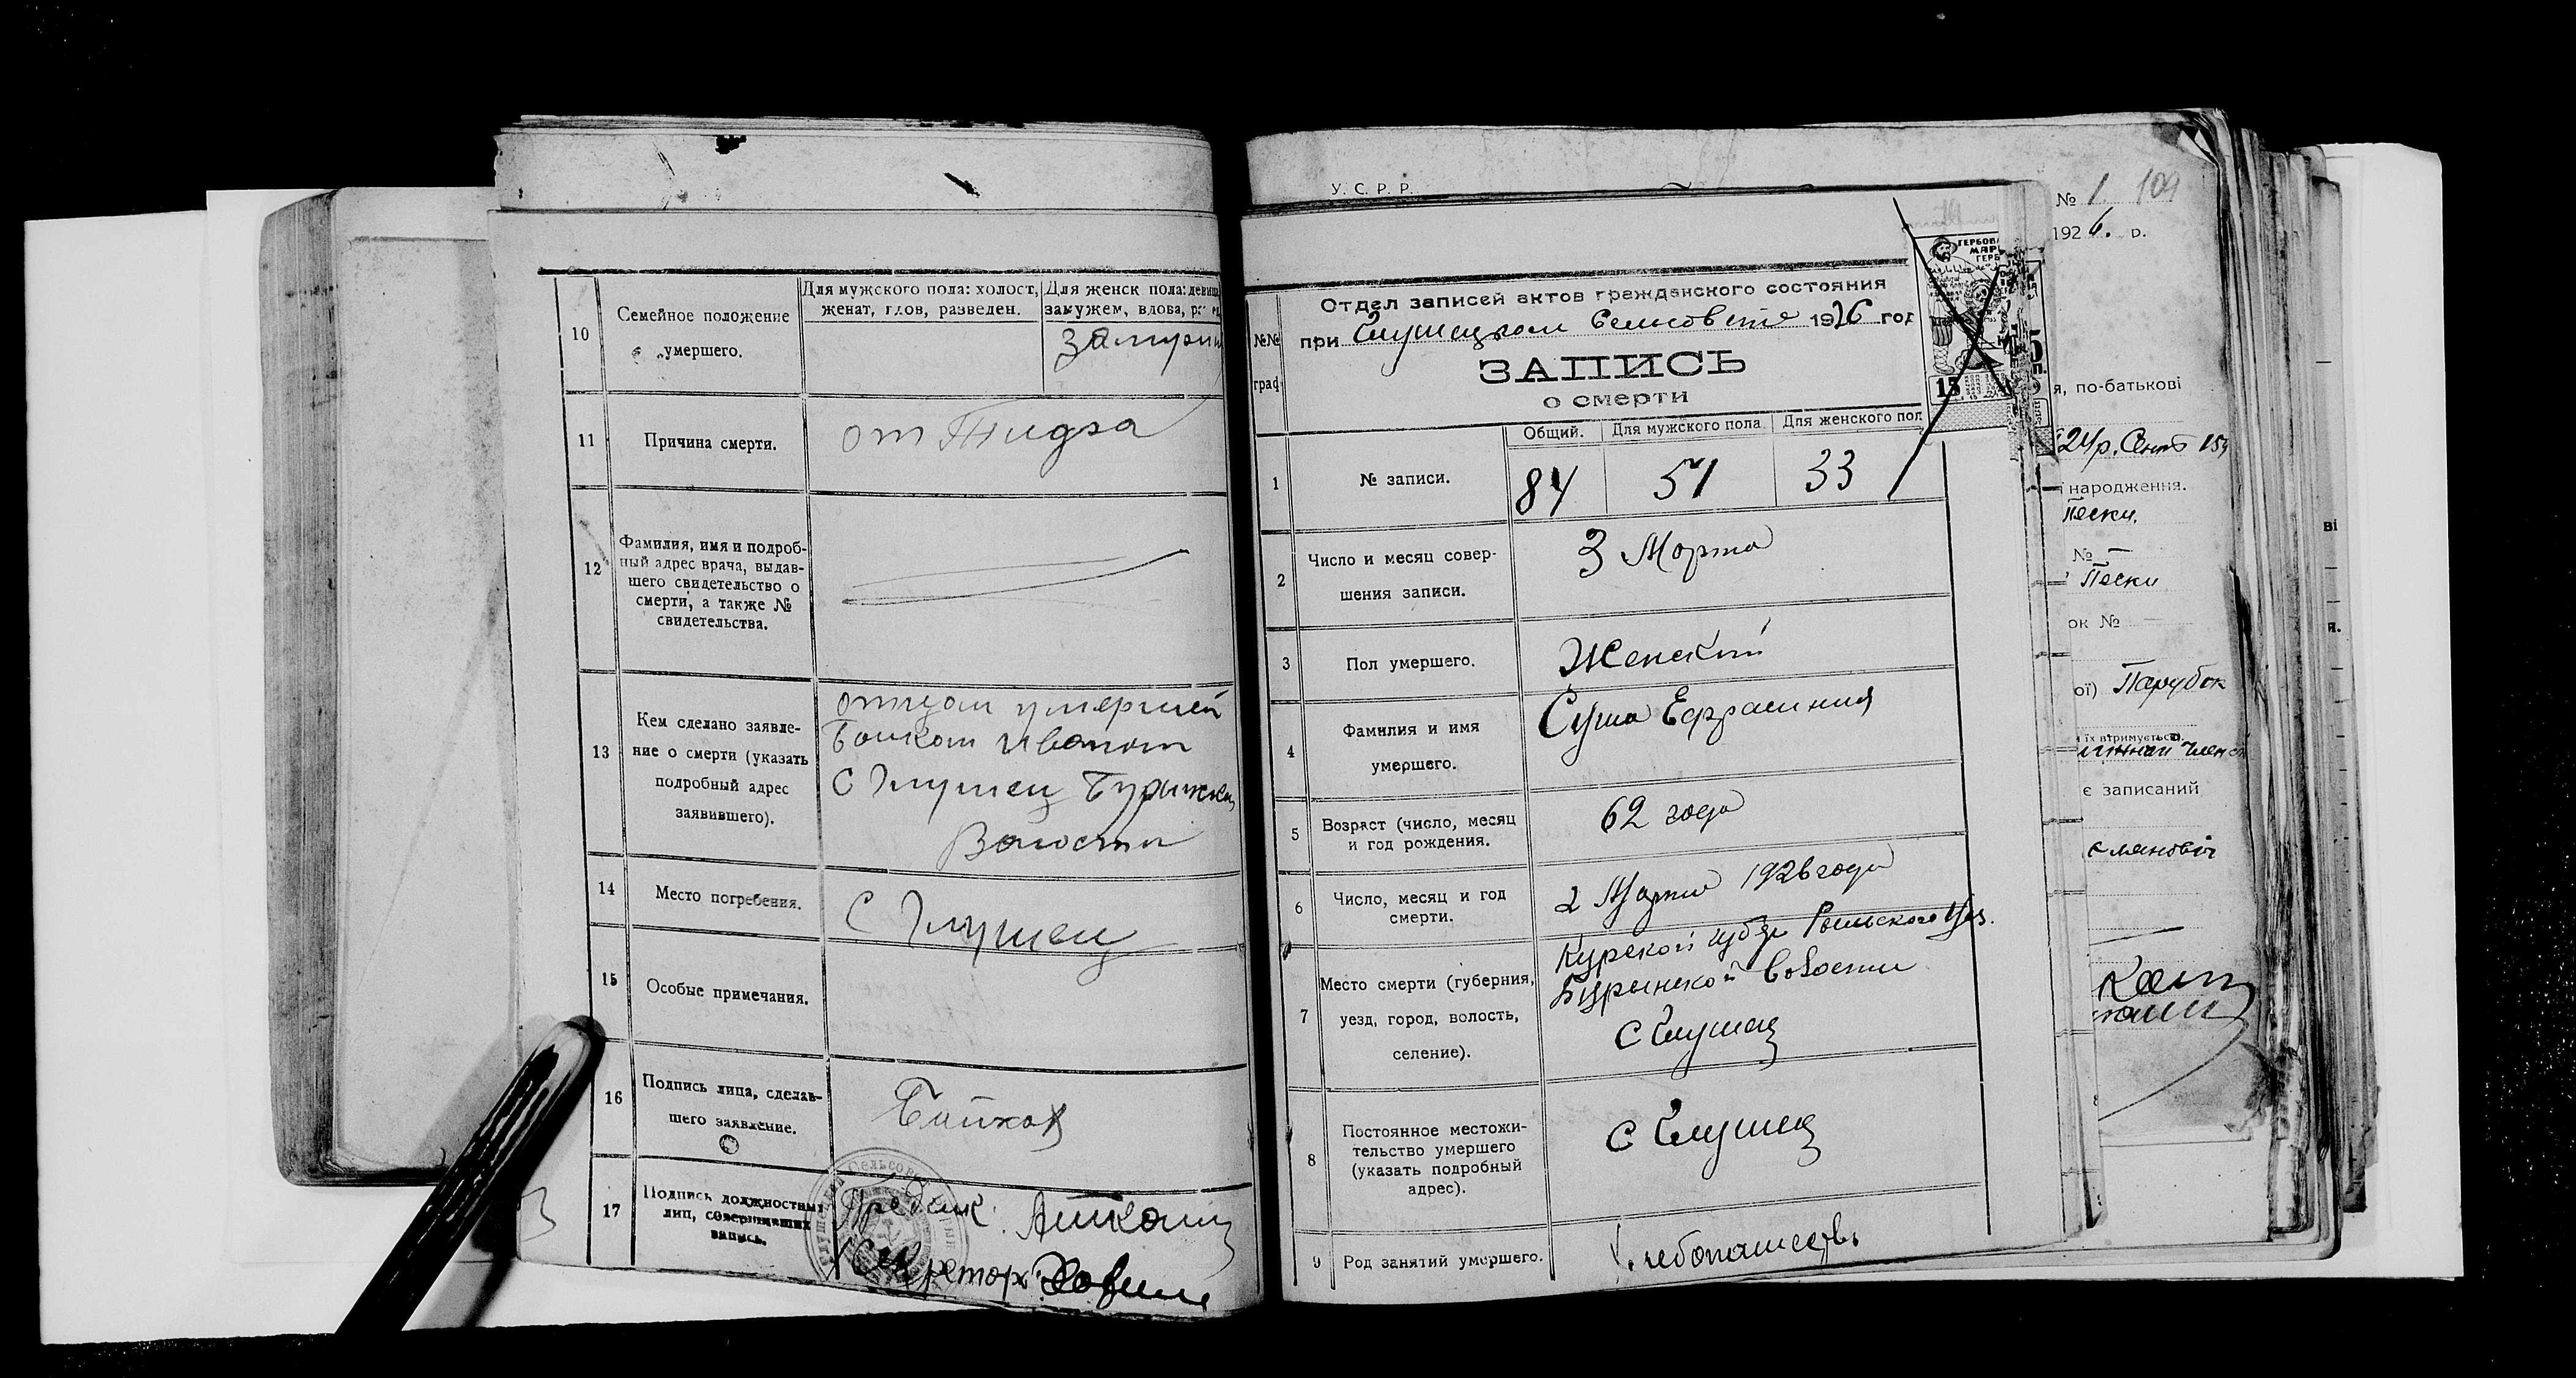 10
Семейное положение
умершего.
Для мужского пола: холост,
женат, вдов, разведен.
Для женск пола: девица
замужем, вдова,
11
Причина смерти.
от
12
Фамилия, имя и подроб-
ный адрес врача, выдав-
шего свидетельство о
смерти, а также №
свидетельства.
13
Кем сделано заявле-
ние о смерти (указать
подробный адрес
заявившего).
отцом умершей
Иваном
С Глушец
Волости
14
Место погребения.
С Глушец
15
Особые примечания.
16
Подпись лица, сделав-
шего заявление.
17
Подпись должностных
лиц, совершивших
запись.
Секреторь
У. С. Р. Р.
Отдел записей актов гражданского состояния
при Глушецком Сельсовете 1926 год
ЗАПИСЬ
о смерти
№№
граф
1
№ записи.
Общий.
Для мужского пола
Для женского пол
84
51
33
2
Число и месяц совер-
шения записи.
3 Марта
3
Пол умершего.
Женский
4
Фамилия и имя
умершего.
Суша Ефрасиния
5
Возраст (число, месяц
и год рождения.
62 года
6
Число, месяц и год
смерти.
2 Марта 1926 года
7
Место смерти (губерния,
уезд, город, волость,
селение).
Курской губ Рыльского Уез.
Бурынской Волости
С Глушец
8
Постоянное местожи-
тельство умершего
(указать подробный
адрес).
С Глушец
9
Род занятий умершего.
15
№ 1
109
1926. р.
я, по-батькові
народження.
Пески.
№ —
Пески
ок № —
ої) Парубок
їх втримується).
є записаний
ві
я.